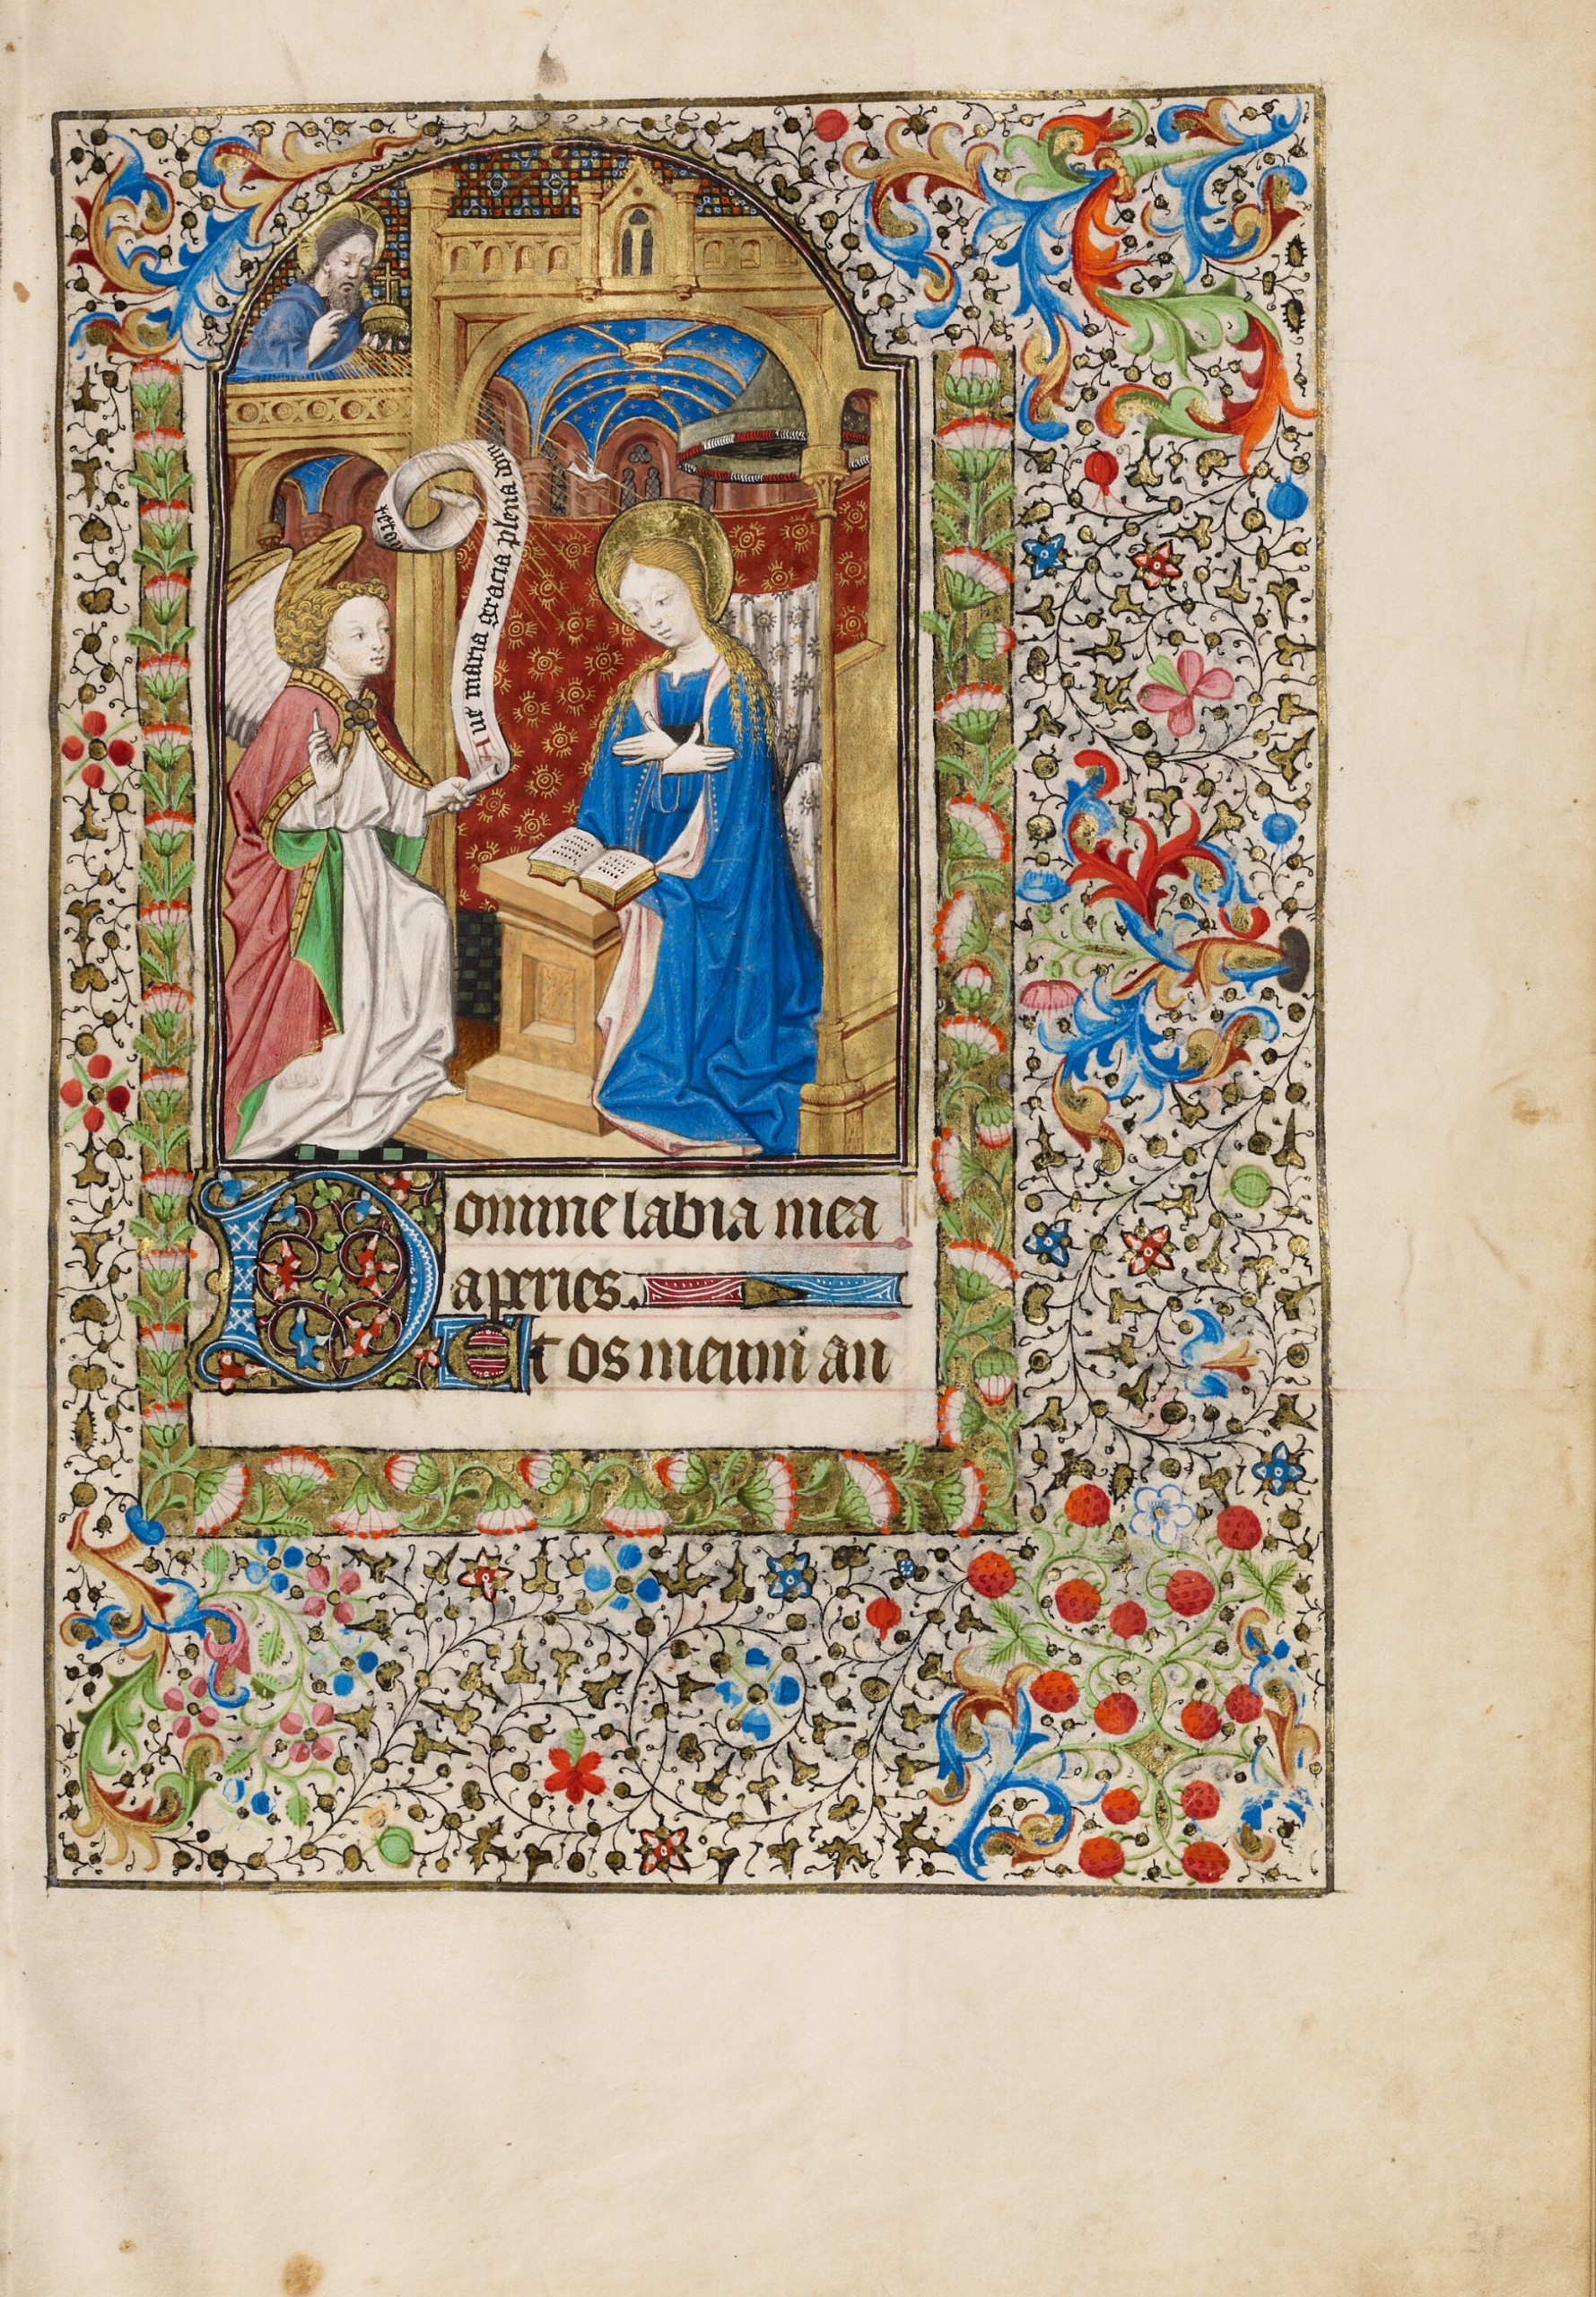 Aue maria gracia plena dom
Domine labia mea
aperies.
Et os meum an